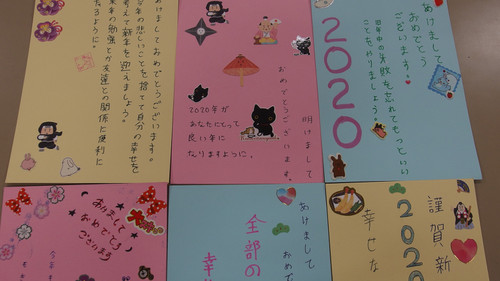 あけましておめでとうございます。
今年の悲しいことを捨てて自分の幸せを
考えて新年を迎えましょう。
来年の勉強とか友達との関係に便利に
なるように。
明けまして
おめでとうございます。
2020年が
あなたにとって
良い年に
なりますように。
あけまして
おめでとう
ございます。
昨年中の失敗を忘れてもっといい
ことをやりましょう。
2020
あけまして
おめでとう
ございます
あけまして
おめで
全部の
幸
謹賀新
2020
幸せな